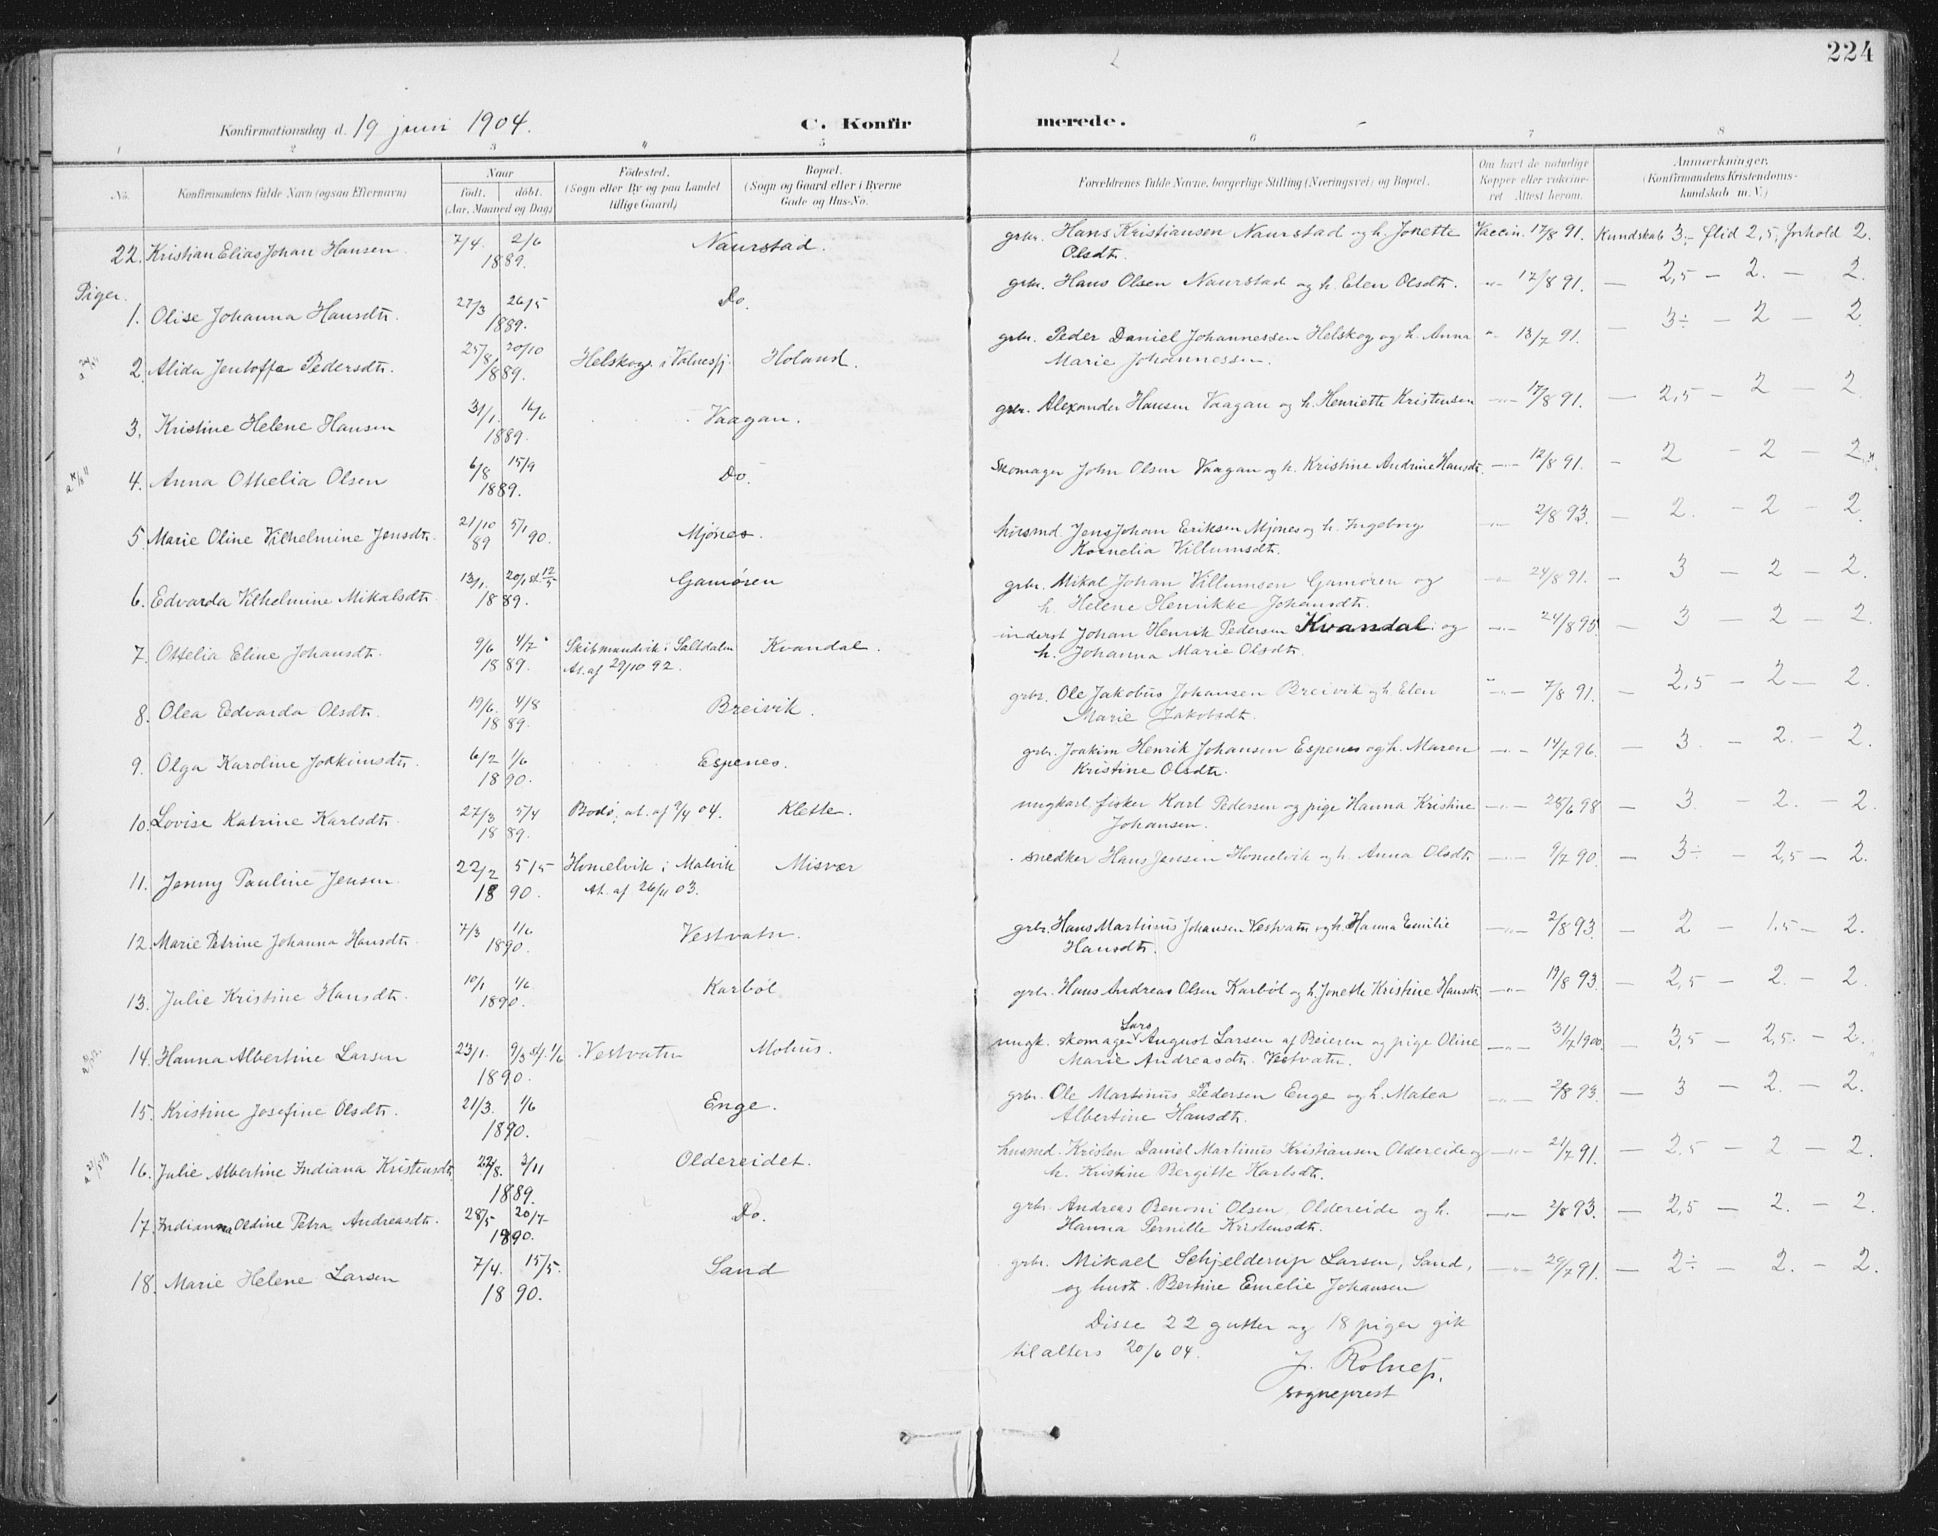 224
Konfirmationsdag d. 19 juni 1904.
C. Konfirmerede.
1 2 3 4 5 6 7 8
No. Konfirmandens fulde Navn (ogsaa Efternavn) Naar født. døbt. (Aar, Maaned og Dag) Fødested. (Sogn eller By og paa Landet tillige Gaard) Bopæl. (Sogn og Gaard eller i Byerne Gade og Hus-No. Forældrenes fulde Navne, borgerlige Stilling (Næringsvei) og Bopæl. Om havt de naturlige Kopper eller vaccineret Attest herom. Anmærkninger. (Konfirmandens Kristendomskundskab m. V.)
22. Kristian Elias Johan Hansen. 7/4. 2/6 1889. Naurstad. grbr. Hans Kristiansen Naurstad og h. Jonette Olsdtr. Vaccin. 17/8 91. Kundskab 3,- flid 2,5, forhold 2.
Piger.
1. Olise Johanna Hansdtr. 27/3 26/5 1889. Do. grbr. Hans Olsen Naurstad og h. Elen Olsdtr. -"- 17/8 91. — 2,5 — 2. — 2.
2. Alida Jentoffa Pedersdtr. 25/8 20/10 1889. Helskog i Valnesfj. Holand. grbr. Peder Daniel Johannessen Helskog og h. Anna Marie Johannessen. " 13/7 91. — 3÷ — 2 — 2
3. Kristine Helene Hansen 31/1. 16/6 1889. Vaagan. grbr. Alexander Hansen Vaagan og h. Henriette Kristensen -"- 17/8 91. — 2,5 — 2 — 2
4. Anna Othelia Olsen 6/8 15/9 1889. Do. Skomager John Olsen Vaagan og h. Kristine Andrine Hansdtr. -"- 12/8 91. — 2 — 2 — 2.
5. Marie Oline Vilhelmine Jensdtr. 21/10 89 5/1 90. Mjønes. husmd Jens Johan Eriksen Mjønes og h. Ingeborg Kornelia Villumsdtr. -"- 2/8 93. — 2. — 2 — 2.
6. Edvarda Vilhelmine Mikalsdtr. 13/1. 20/1 st. 12/5 1889. Gamøren grbr. Mikal Johan Villumsen Gamøren og h. Helene Henrikke Johansdtr. -"- 24/8 91. — 3 — 2 — 2.
7. Othelia Eline Johansdtr. 9/6 4/7 1889. Skibmandvik i Saltdalen At. af 29/10 92. Kvandal. inderst Johan Henrik Pedersen Kvandal og h. Johanna Marie Olsdtr. -"- 24/8 95. — 3 — 2 — 2.
8. Olea Edvarda Olsdtr. 19/6. 4/8 1889. Breivik. grbr. Ole Jakobus Johansen Breivik og h. Elen Marie Jakobsdtr. -"- 7/8 91. — 2,5 — 2 — 2.
9. Olga Karoline Joakimsdtr. 6/2 1/6 1890. Espenes. grbr. Joakim Henrik Johansen Espenes og h. Maren Kristine Olsdtr. -"- 14/7 96. — 3. — 2. — 2.
10. Lovise Katrine Karlsdtr. 27/3 5/4 1889. Bodø, at. af 9/4 04. Klette. ungkarl fisker Karl Pedersen og pige Hanna Kristine Johansen. -"- 28/6 98 — 3. — 2. — 2.
11. Jenny Pauline Jensen. 22/2 5/5 1890. Homelvik i Malvik At. af 26/11 03. Misvær snedker Hans Jensen Homelvik og h. Anna Olsdtr. -"- 9/7 90. — 3÷ — 2,5 — 2.
12. Marie Petrine Johanna Hansdtr. 7/3 1/6 1890. Vestvatn. grbr. Hans Martinus Johansen Vestvatn og h. Hanna Emilie Hansdtr. -"- 2/8 93. — 2 — 1.5 — 2.
13. Julie Kristine Hansdtr. 10/1 1/6 1890. Karbøl grbr. Hans Andreas Olsen Karbøl og h. Jonette Kristine Hansdtr. -"- 19/8 93. — 2,5 — 2. — 2.
14. Hanna Albertine Larsen 23/1. 9/3 st. 1/6 1890. Vestvatn Mohus. ungk. skomager Lars August Larsen af Beieren og pige Oline Marie Andreasdtr. Vestvatn. -"- 31/7 1900. — 3,5 — 2,5. — 2.
15. Kristine Josefine Olsdtr. 21/3. 1/6 1890. Enge. grbr. Ole Martinus Pedersen Enge og h. Matea Albertine Hansdtr. -"- 2/8 93. — 3 — 2. — 2.
16. Julie Albertine Indiana Kristensdtr. 22/8. 3/11 1889. Oldereidet. husmd. Kristen Daniel Martinus Kristiansen Oldereide og h. Kristine Bergitte Karlsdtr. -"- 21/7 91. — 2,5 — 2 — 2.
17. Indianna Oldine Petra Andreasdtr. 28/5 20/7 1890. Do. grbr. Andreas Benoni Olsen, Oldereide og h. Hanna Pernille Kristensdtr. -"- 2/8 93. — 2,5 — 2. — 2.
18. Marie Helene Larsen 7/4. 15/5. 1890. Sand grbr. Mikael Schjelderup Larsen, Sand, og hust. Bertine Emelie Johansen -"- 29/7 91. — 2÷ — 2. — 2.
Disse 22 gutter og 18 piger gik
til alters 20/6 04.
sogneprest